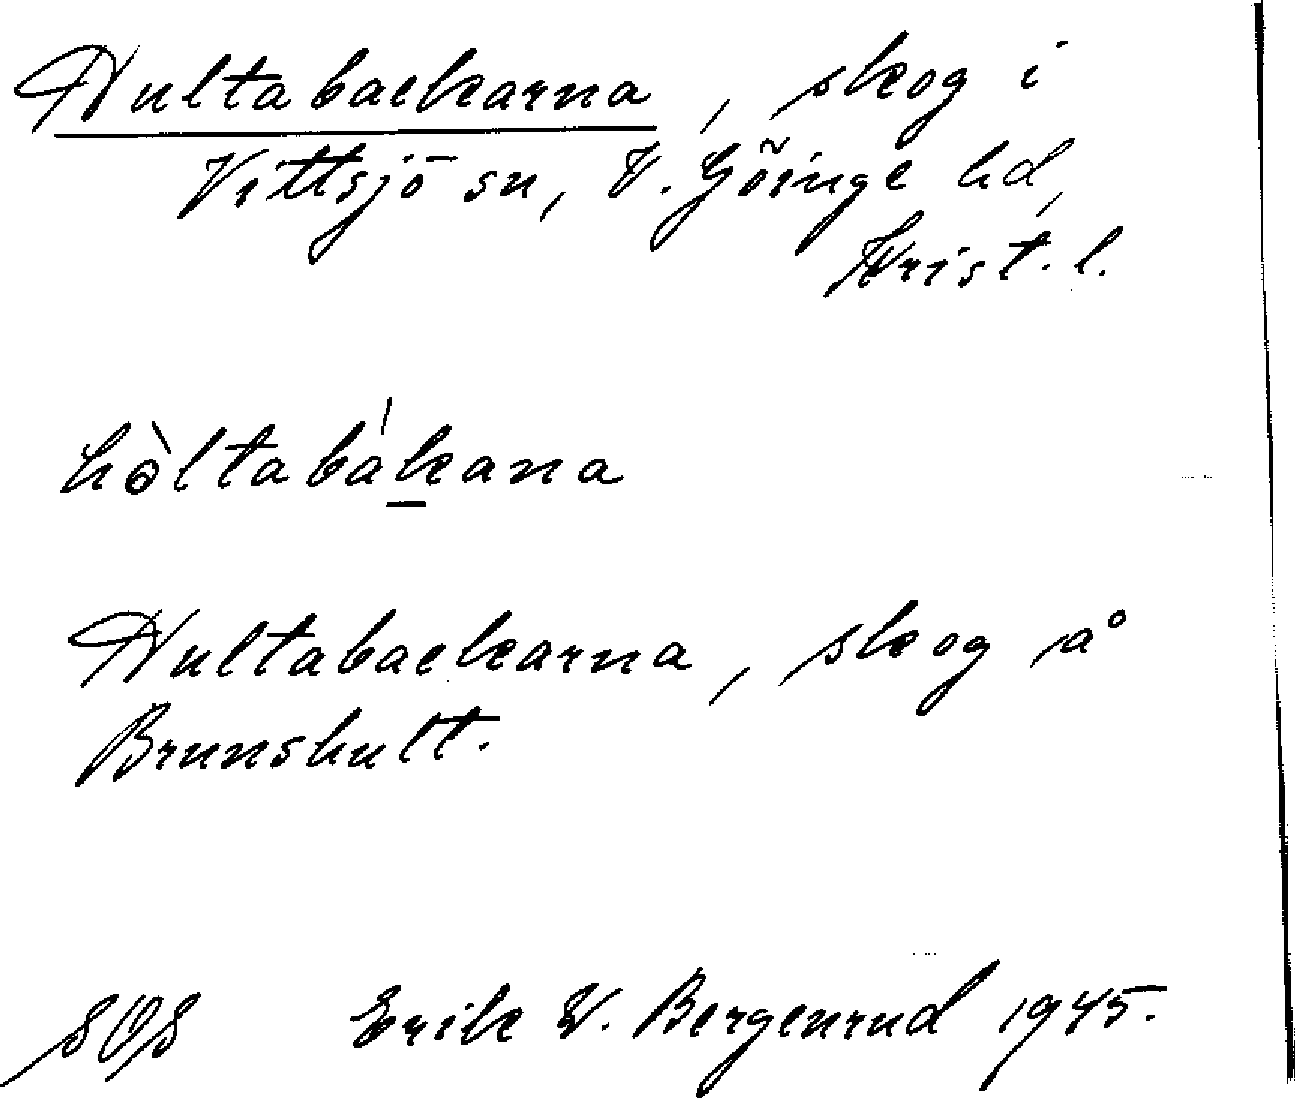 Hultabackarna, skog i
Vittsjö sn, V. Göinge hd,
Krist. l.
hòltabákana
Hultabackarna, skog på
Brunshult.
SOS Erik V. Bergenrud 1945.